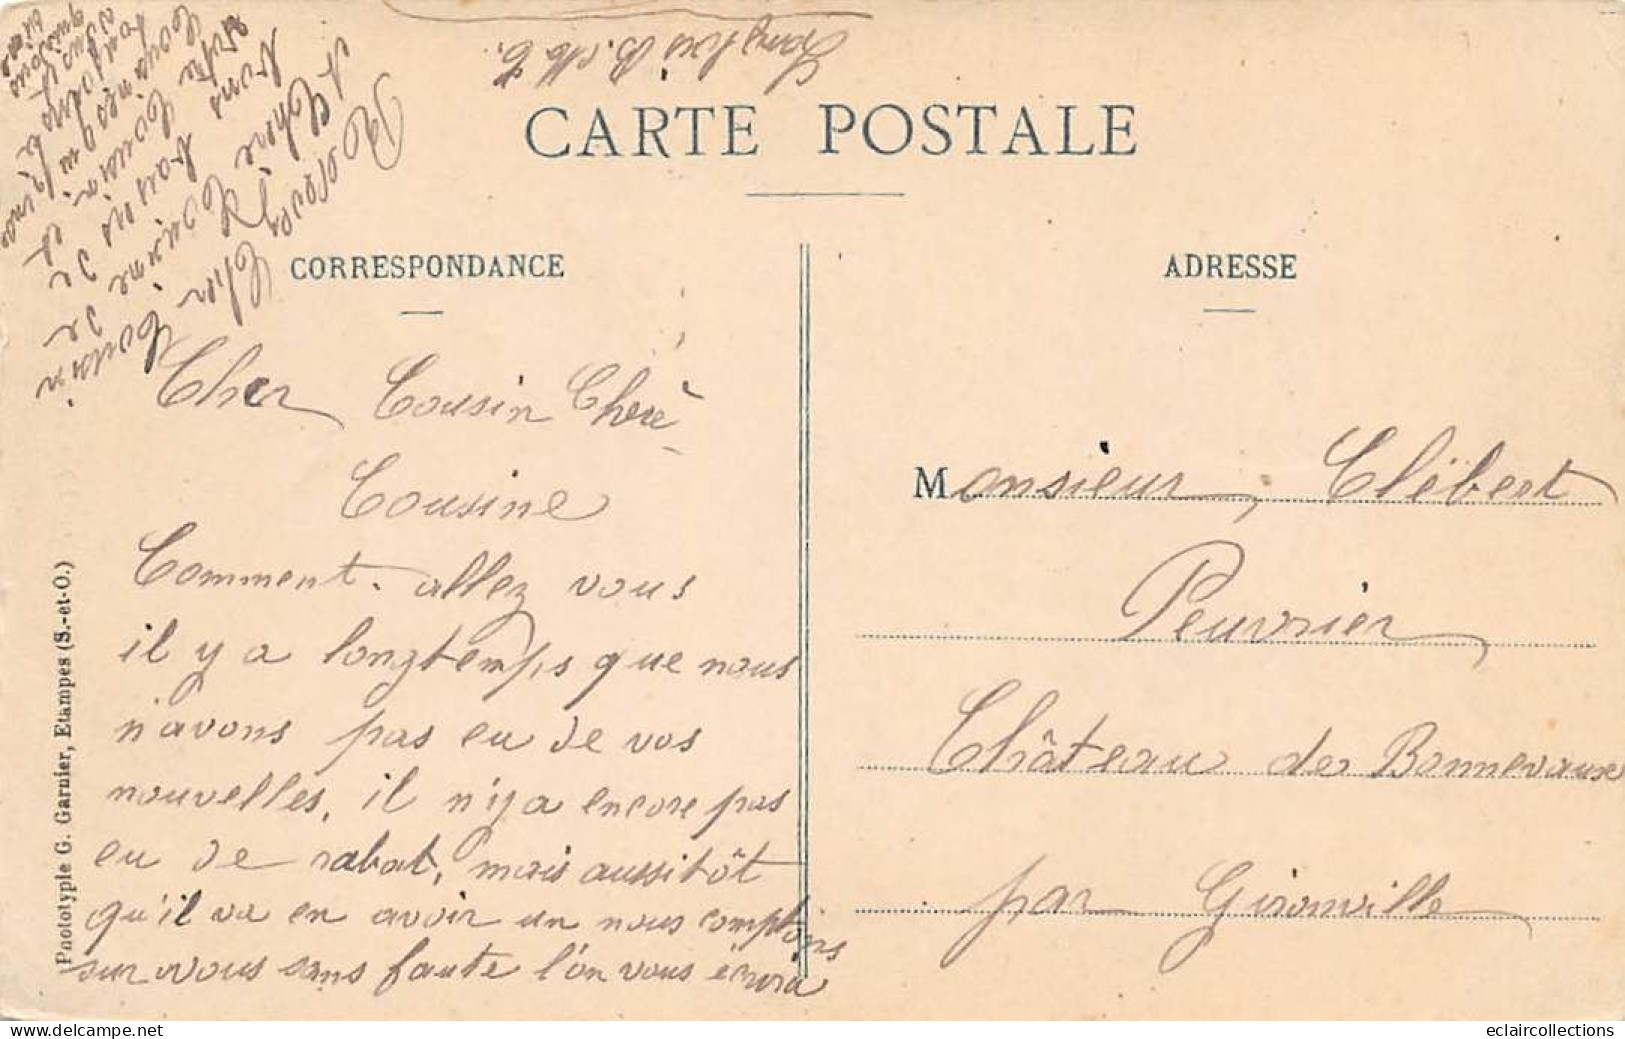 CARTE POSTALE
CORRESPONDANCE
ADRESSE
Cher Cousin Cherè
Cousine
Comment allez vous
il y a longtemps que nous
n'avons pas eu de vos
nouvelles, il n'y a encore pas
eu de rabat, mais aussitôt
qu'il va en avoir un nous comptons
sur vous sans faute l'on vous écrira
Recevez Cher Cousin
et Cherè Cousine de
Monsieur, Clébert
Peuvrier
Château de Bonnevaux
par Gironville
Phototypie G. Garnier, Etampes (S.-et-O.)
eclaircollections